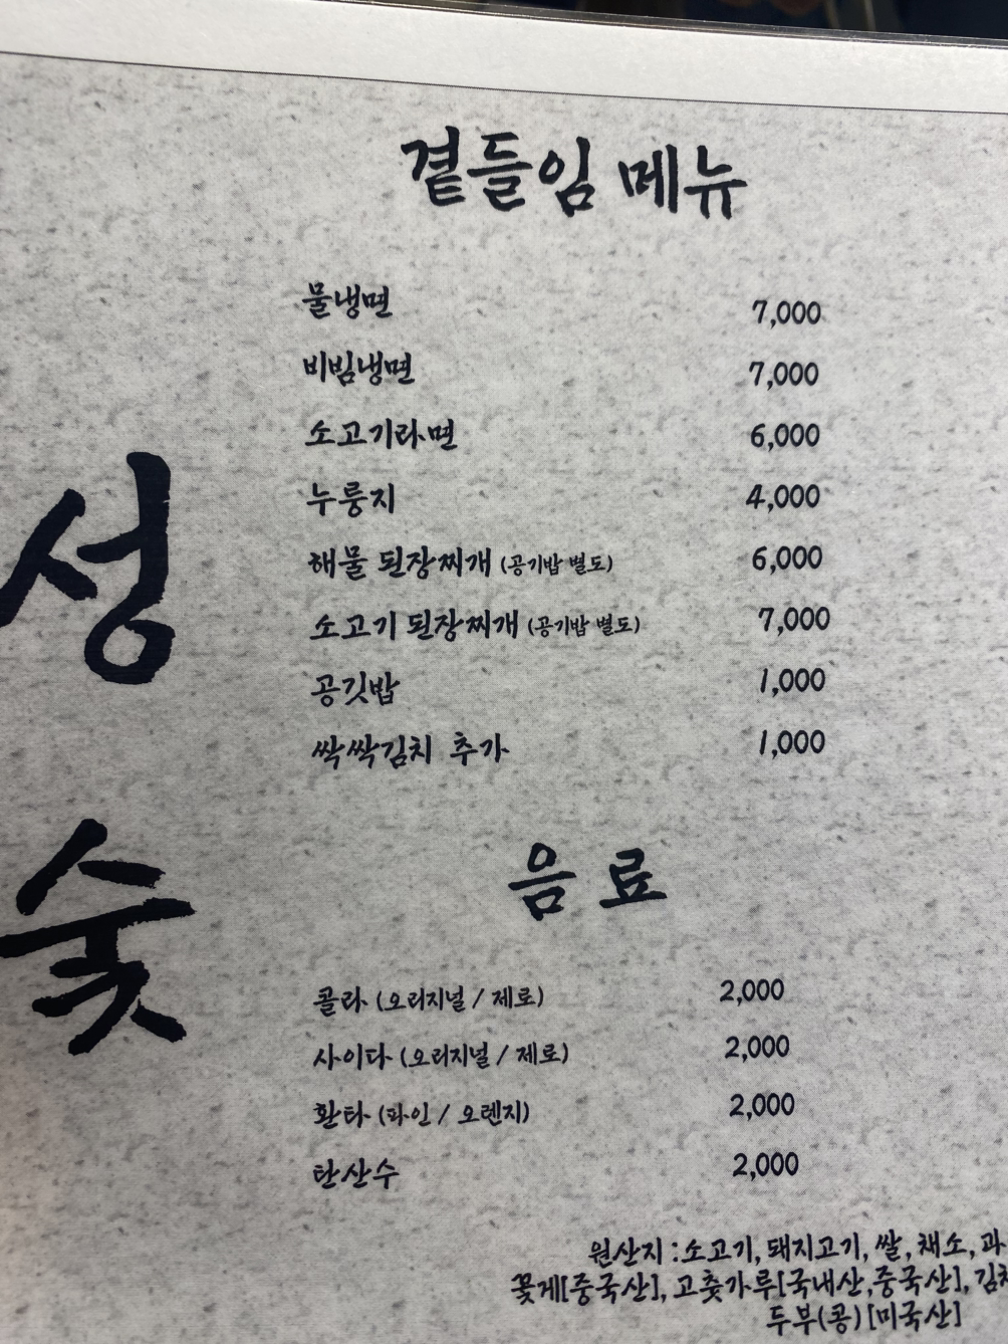 곁들임 메뉴
물냉면 7,000
비빔냉면 7,000
소고기라면 6,000
누룽지 4,000
해물 된장찌개 (공기밥 별도) 6,000
소고기 된장찌개 (공기밥 별도) 7,000
공깃밥 1,000
싹싹김치 추가 1,000
성
숯
음료
콜라 (오리지널 / 제로) 2,000
사이다 (오리지널 / 제로) 2,000
환타 (파인 / 오렌지) 2,000
탄산수 2,000
원산지 : 소고기, 돼지고기, 쌀, 채소,
꽃게[중국산], 고춧가루[국내산,중국산],
두부(콩)[미국산]